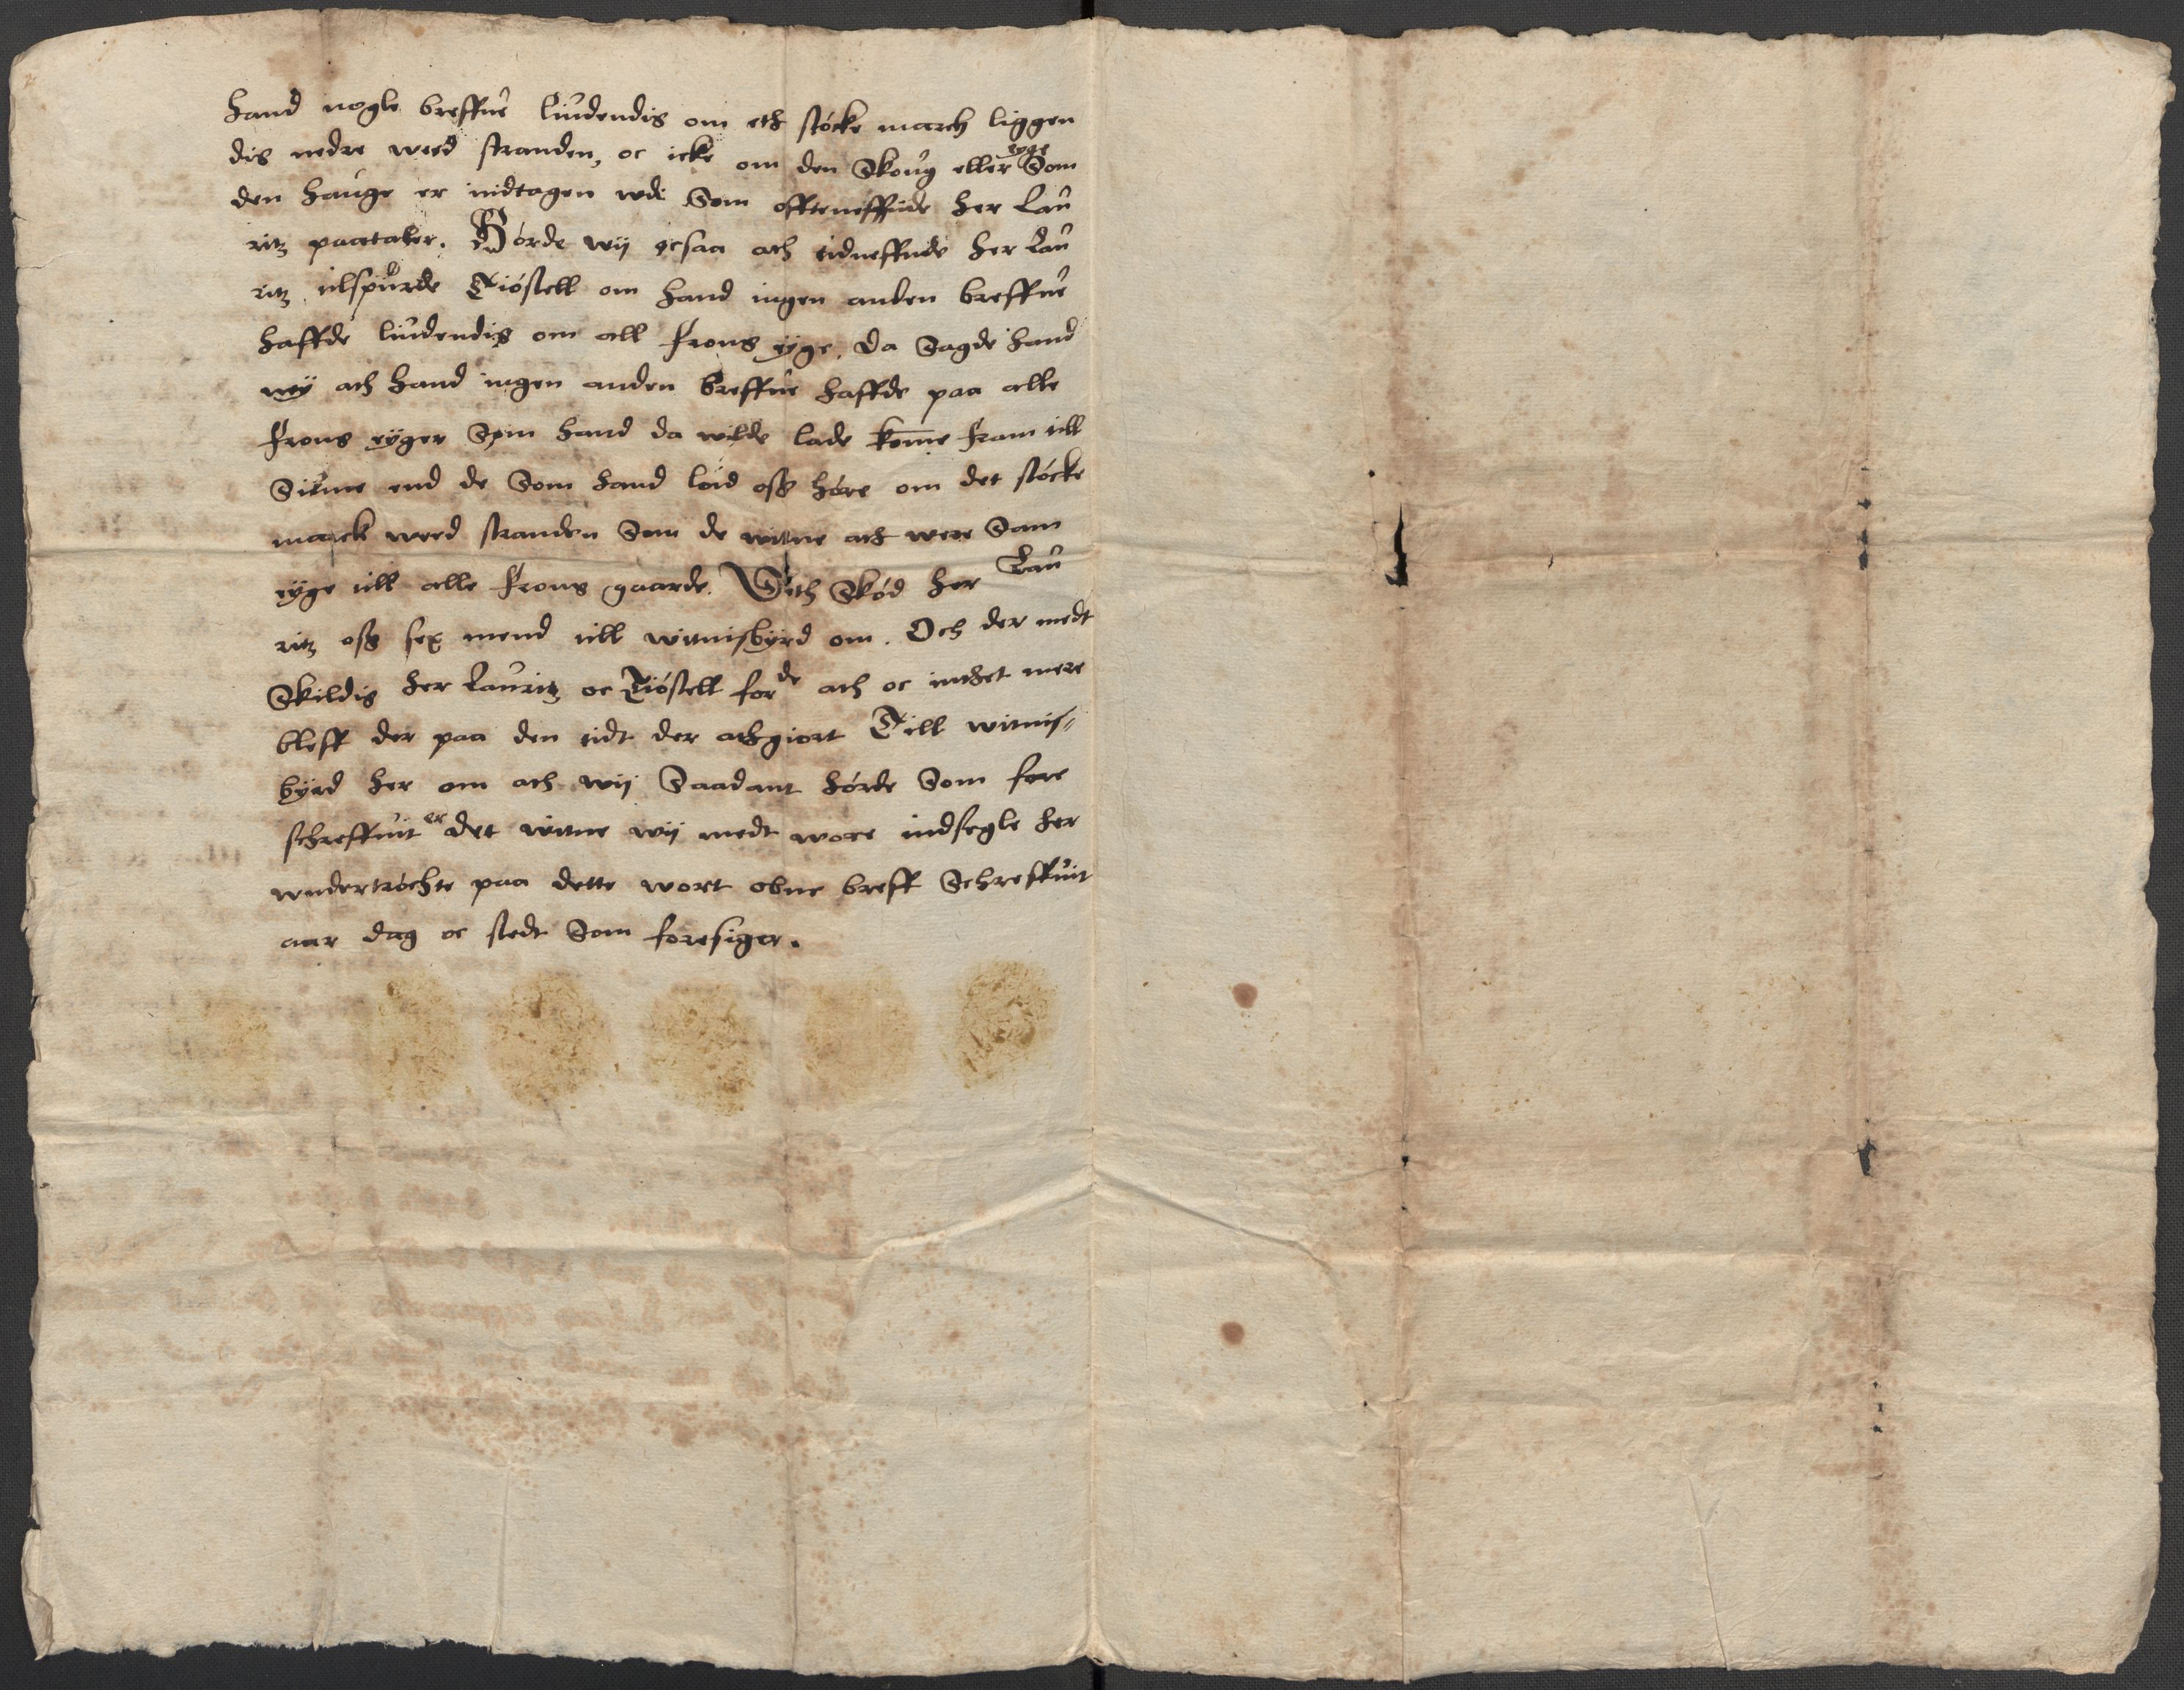 hand nogle breffue liudendis om eth støcke march liggen
dis nedre weed stranden, oc icke om den Skoug eller eyge Som
den hauge er indtagen wdi Som offteneffnde her Lau
ritz paataler. Hørde wij ocsaa ath tidneffnde her Lau
ritz tilspurde Tiøstell om hand ingen anden breffue
haffde liudendis om all Frons eyge. Da Sagde hand
ney ath hand ingen anden breffue haffde paa alle
Frons eyger Som hand da wilde lade kome fram till
Siune end de Som hand loid oss høre om det støcke
marck weed stranden Som de witne ath were Sam
eyge till alle Frons gaarde. Eth Skød her Lau
ritz oss sex mend till witnisbyrd om. Och der medt
Skildis her Lauritz oc Tiøstell forde ath oc inthet mere
bleff der paa den tidt der athgiort Till witnis
byrd her om ath wij Saadant hørde Som fore
schreffuit er det witne wij medt wore indsegle her
wndertrøchte paa dette wort obne breff Schreffuit
aar dag oc stedt Som foresiger.